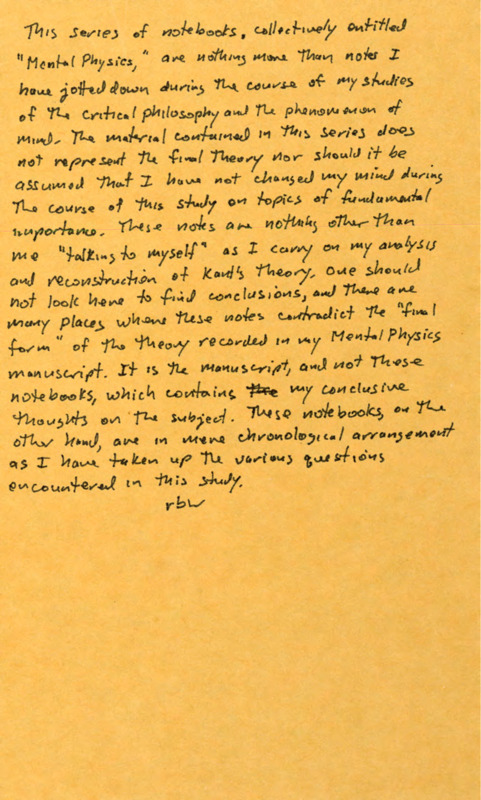 This series of notebooks, collectively entitled
"Mental Physics," are nothing more than notes I
have jotted down during the course of my studies
of the critical philosophy and the phenomenon of
mind. The material contained in this series does
not represent the final theory nor should it be
assumed that I have not changed my mind during
the course of this study on topics of fundamental
importance. These notes are nothing other than
me "talking to myself" as I carry on my analysis
and reconstruction of Kant's theory. One should
not look here to find conclusions, and there are
many places where these notes contradict the "final
form" of the theory recorded in my Mental Physics
manuscript. It is the manuscript, and not these
notebooks, which contains the my conclusive
thoughts on the subject. These notebooks, on the
other hand, are in mere chronological arrangement
as I have taken up the various questions
encountered in this study.
rbw